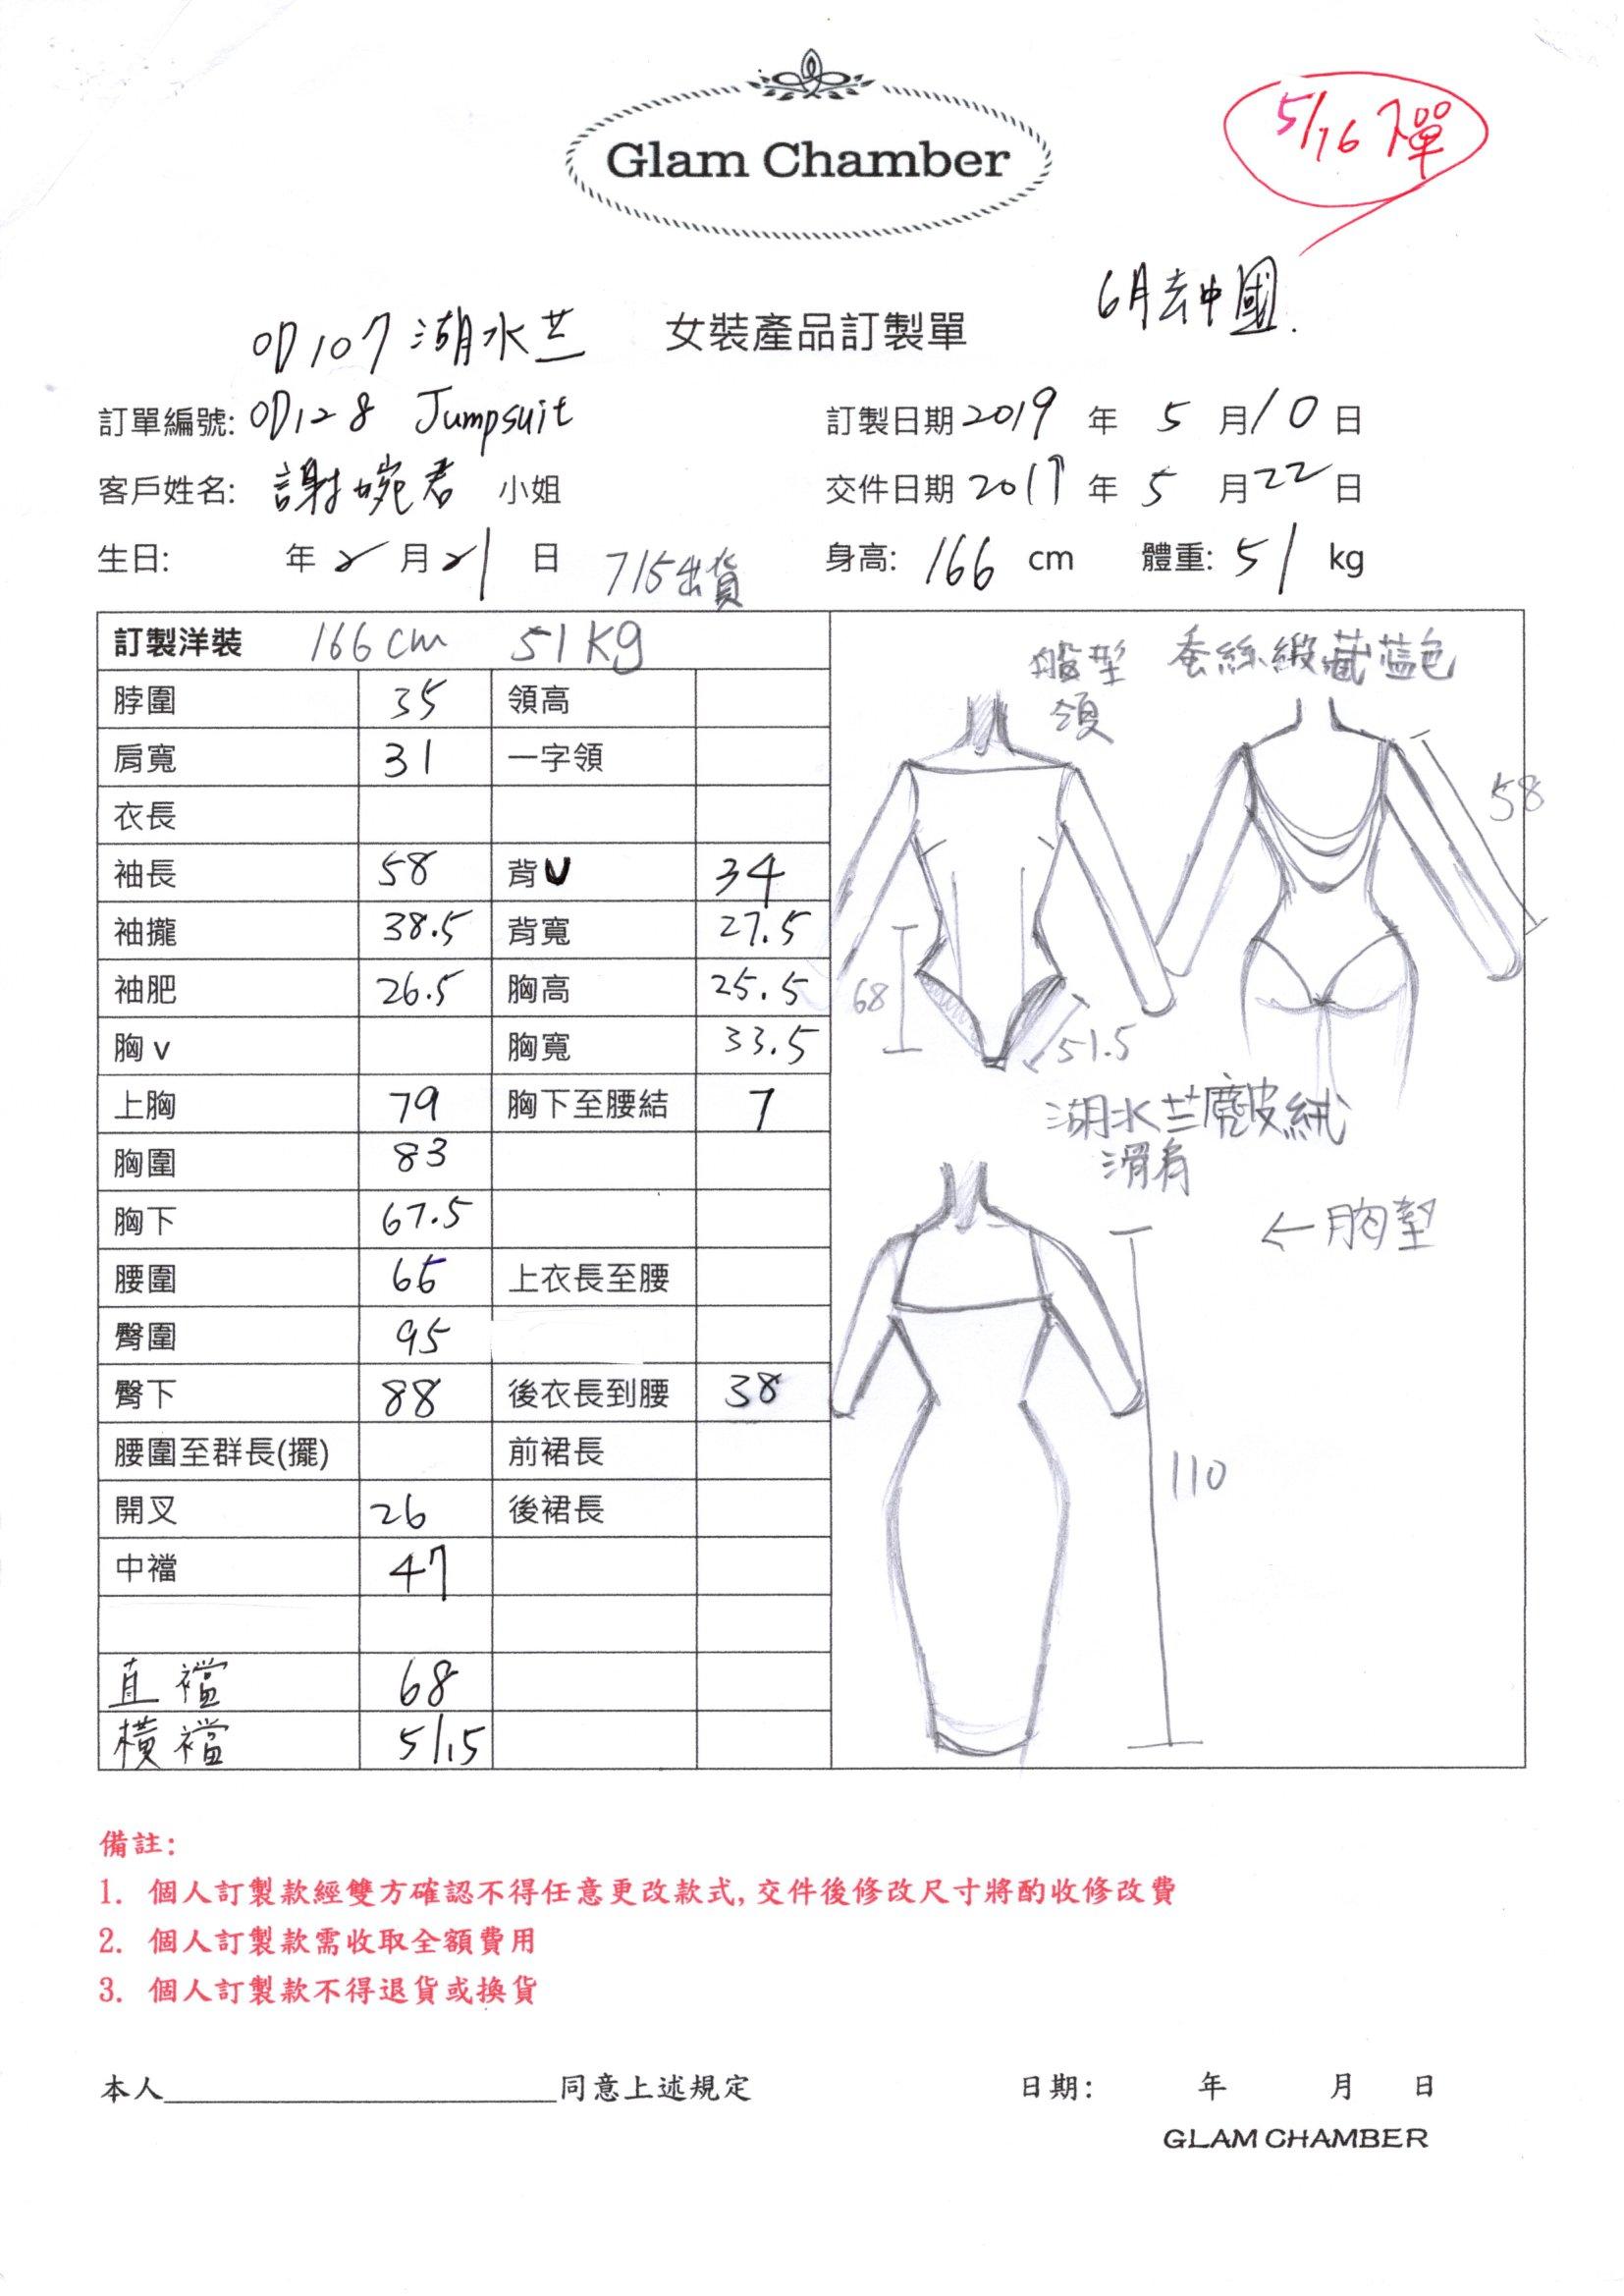 5/16 下單
Glam Chamber
6月去中國.
OP107 湖水芸 女裝產品訂製單
訂單編號: OP128 Jumpsuit 訂製日期 2019 年 5 月 10 日
客戶姓名: 謝婉君 小姐 交件日期 2019 年 5 月 22 日
生日: 年 2 月 21 日 7/15出貨 身高: 166 cm 體重: 51 kg
訂製洋裝 166cm 51Kg
脖圍 35 領高
肩寬 31 一字領
衣長
袖長 58 背V 34
袖攏 38.5 背寬 27.5
袖肥 26.5 胸高 25.5
胸v 胸寬 33.5
上胸 79 胸下至腰結 7
胸圍 83
胸下 67.5
腰圍 65 上衣長至腰
臀圍 95
臀下 88 後衣長到腰 38
腰圍至群長(擺) 前裙長
開叉 26 後裙長
中襠 47
直襠 68
橫襠 51.5
船型 蚕絲緞藏蓝色
領
58
68
51.5
湖水芸麂皮絨
滑肩
←胸墊
110
備註:
1. 個人訂製款經雙方確認不得任意更改款式,交件後修改尺寸將酌收修改費
2. 個人訂製款需收取全額費用
3. 個人訂製款不得退貨或換貨
本人____________________同意上述規定 日期: 年 月 日
GLAM CHAMBER